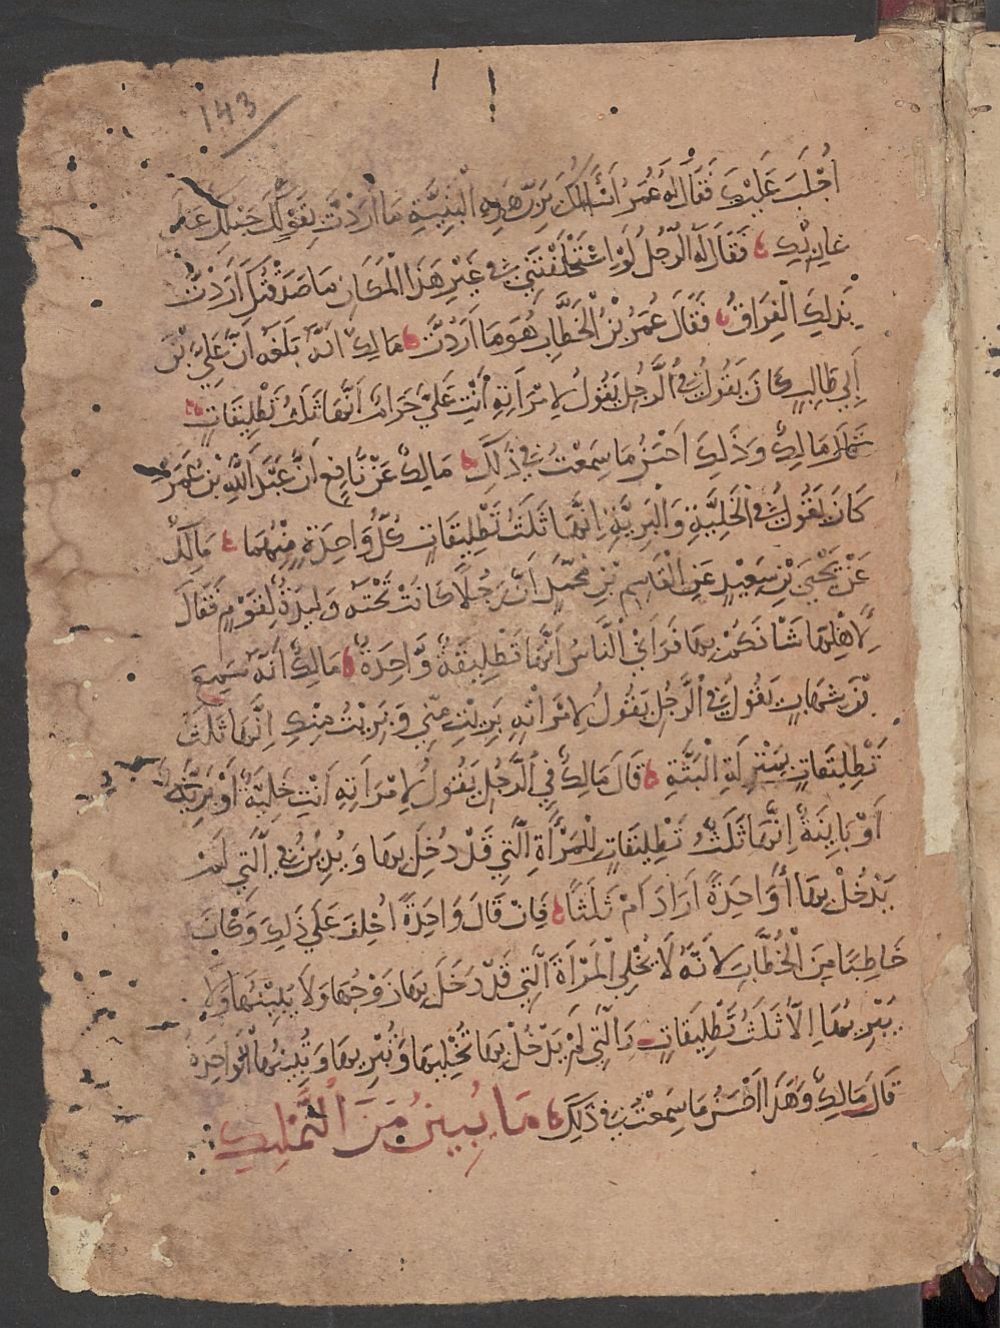 143
أُجْلَبَ عَلَيْكَ فَقَالَ لَهُ عُمَرُ أَسْأَلُكَ بِرَبِّ هَذِهِ الْبَنِيَّةِ مَا أَرَدْتَ بِقَوْلِكَ حَبْلُكِ عَلَى
غَارِبِكِ فَقَالَ لَهُ الرَّجُلُ لَوِ اسْتَحْلَفْتَنِي فِي غَيْرِ هَذَا الْمَكَانِ مَا صَدَقْتُكَ أَرَدْتُ
بِذَلِكَ الْفِرَاقَ فَقَالَ عُمَرُ بْنُ الْخَطَّابِ هُوَ مَا أَرَدْتَ مَالِكٌ أَنَّهُ بَلَغَهُ أَنَّ عَلِيَّ بْنَ
أَبِي طَالِبٍ كَانَ يَقُولُ فِي الرَّجُلِ يَقُولُ لِامْرَأَتِهِ أَنْتِ عَلَيَّ حَرَامٌ أَنَّهَا ثَلَثُ تَطْلِيقَاتٍ
قَالَ مَالِكٌ وَذَلِكَ أَحْسَنُ مَا سَمِعْتُ فِي ذَلِكَ مَالِكٌ عَنْ نَافِعٍ أَنَّ عَبْدَ اللَّهِ بْنَ عُمَرَ
كَانَ يَقُولُ فِي الْخَلِيَّةِ وَالْبَرِيَّةِ إِنَّهَا ثَلَثُ تَطْلِيقَاتٍ كُلُّ وَاحِدَةٍ مِنْهُمَا مَالِكٌ
عَنْ يَحْيَى بْنِ سَعِيدٍ عَنِ الْقَاسِمِ بْنِ مُحَمَّدٍ أَنَّ رَجُلًا كَانَتْ تَحْتَهُ وَلِيدَةٌ لِقَوْمٍ فَقَالَ
لِأَهْلِهَا شَأْنَكُمْ بِهَا فَرَأَى النَّاسُ أَنَّهَا تَطْلِيقَةٌ وَاحِدَةٌ مَالِكٌ أَنَّهُ سَمِعَ
بْنَ شِهَابٍ يَقُولُ فِي الرَّجُلِ يَقُولُ لِامْرَأَتِهِ بَرِئْتِ مِنِّي وَبَرِئْتُ مِنْكِ إِنَّهَا ثَلَثُ
تَطْلِيقَاتٍ بِمَنْزِلَةِ الْبَتَّةِ قَالَ مَالِكٌ فِي الرَّجُلِ يَقُولُ لِامْرَأَتِهِ أَنْتِ خَلِيَّةٌ أَوْ بَرِيَّةٌ
أَوْ بَايِنَةٌ إِنَّهَا ثَلَثُ تَطْلِيقَاتٍ لِلْمَرْأَةِ الَّتِي قَدْ دُخِلَ بِهَا وَيُدَيَّنُ فِي الَّتِي لَمْ
يَدْخُلْ بِهَا أَوَاحِدَةً أَرَادَ أَمْ ثَلَثًا فَإِنْ قَالَ وَاحِدَةً أُحْلِفَ عَلَى ذَلِكَ وَكَانَ
خَاطِبًا مِنَ الْخُطَّابِ لِأَنَّهُ لَا يُخْلِي الْمَرْأَةَ الَّتِي قَدْ دَخَلَ بِهَا زَوْجُهَا وَلَا يُبِينُهَا وَلَا
يُبْرِيهَا إِلَّا ثَلَثُ تَطْلِيقَاتٍ وَالَّتِي لَمْ يَدْخُلْ بِهَا تُخْلِيهَا وَتُبْرِيهَا وَتُبِينُهَا الْوَاحِدَةُ
قَالَ مَالِكٌ وَهَذَا أَحْسَنُ مَا سَمِعْتُ فِي ذَلِكَ مَا يُبِينُ مِنَ التَّمْلِيكِ